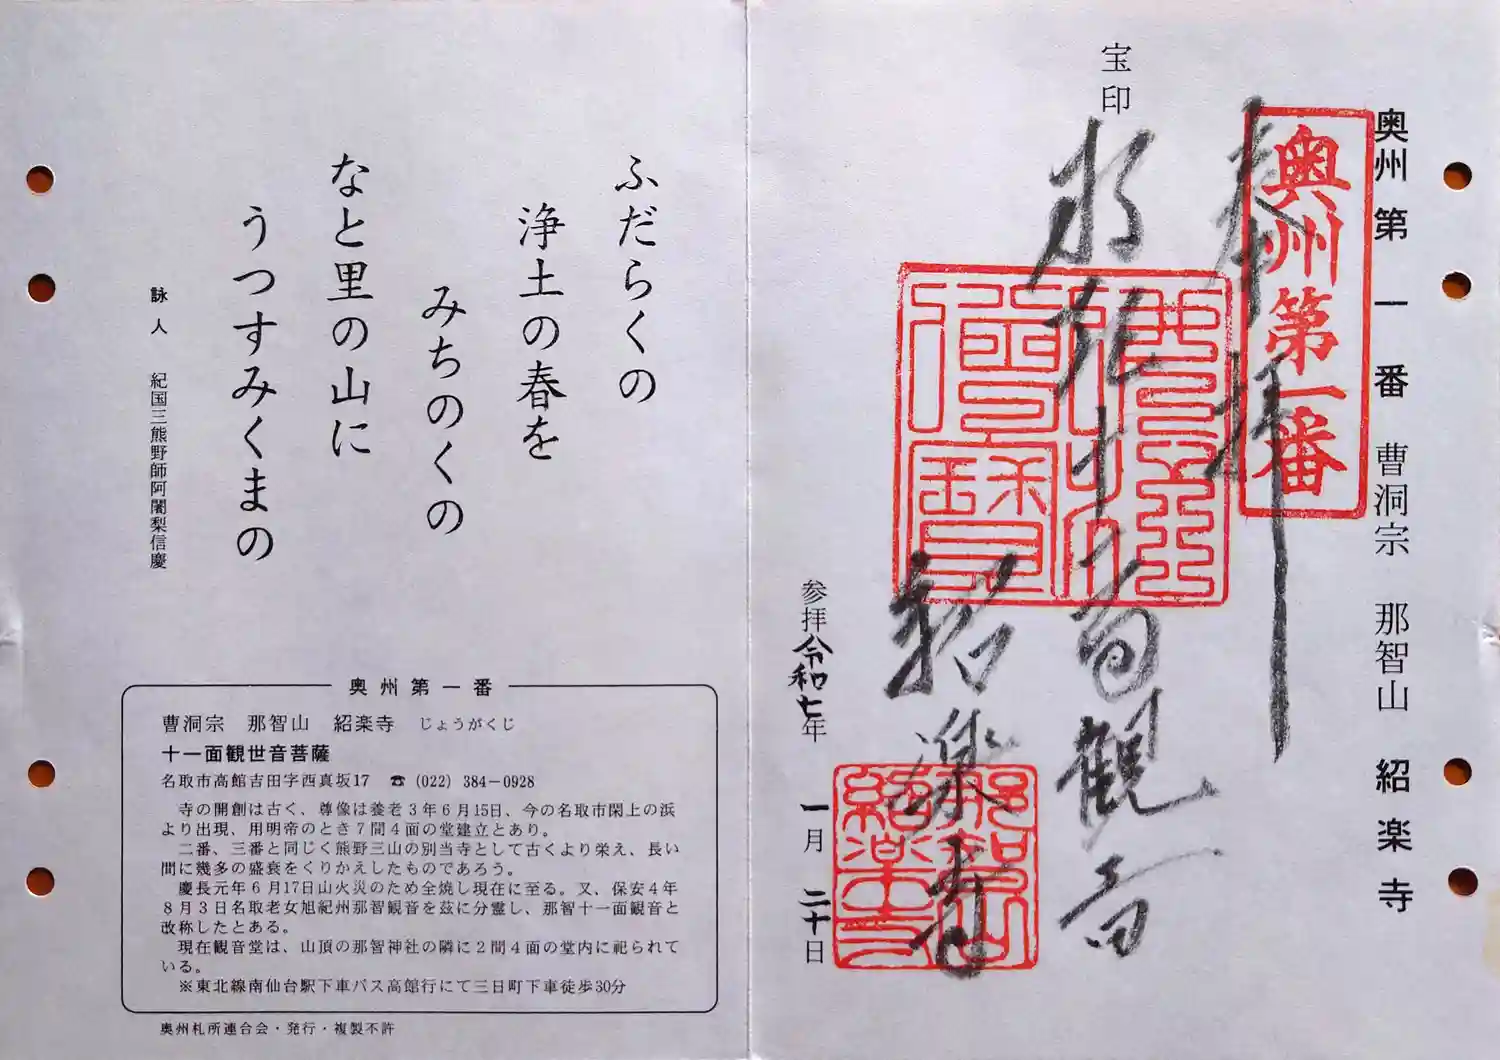 奥州第一番 曹洞宗 那智山 紹楽寺
奥州第一番
奉拝
宝印
十一面観音
紹楽寺
那智山
紹楽寺
参拝令和七年 一月 二十日
ふだらくの
浄土の春を
みちのくの
なと里の山に
うつすみくまの
詠人 紀国三熊野師阿闍梨信慶
奥州第一番
曹洞宗 那智山 紹楽寺 じょうがくじ
十一面観世音菩薩
名取市高館吉田字西真坂17 ☎ (022) 384-0928
寺の開創は古く、尊像は養老3年6月15日、今の名取市閖上の浜
より出現、用明帝のとき7間4面の堂建立とあり。
二番、三番と同じく熊野三山の別当寺として古くより栄え、長い
間に幾多の盛衰をくりかえしたものであろう。
慶長元年6月17日山火災のため全焼し現在に至る。又、保安4年
8月3日名取老女旭紀州那智観音を玆に分霊し、那智十一面観音と
改称したとある。
現在観音堂は、山頂の那智神社の隣に2間4面の堂内に祀られて
いる。
※東北線南仙台駅下車バス高館行にて三日町下車徒歩30分
奥州札所連合会・発行・複製不許